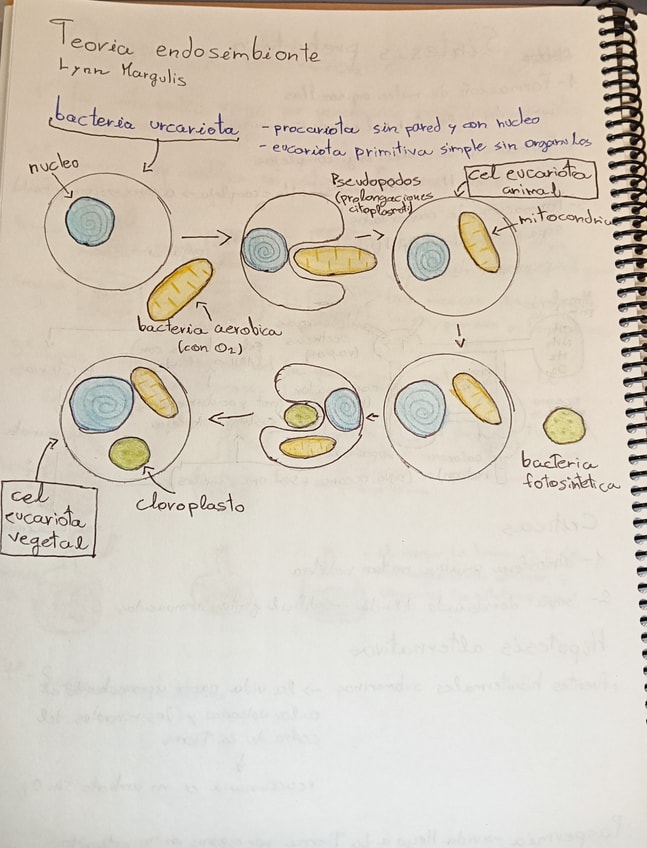 Teoria endosimbionte
Lynn Margulis
bacteria urcariota
- procariota sin pared y con nucleo
- eucariota primitiva simple sin organulos
nucleo
Pseudopodos
(prolongaciones
cel eucariota
animal
mitocondria
bacteria aerobica
(con O2)
bacteria
fotosintetica
cloroplasto
cel
eucariota
vegetal